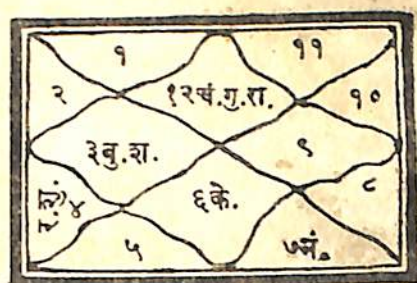 १ ११
२ १२चं.गु.रा. १०
३बु.श. ९
र.शु. ४ ६के. ८
५ ७मं.